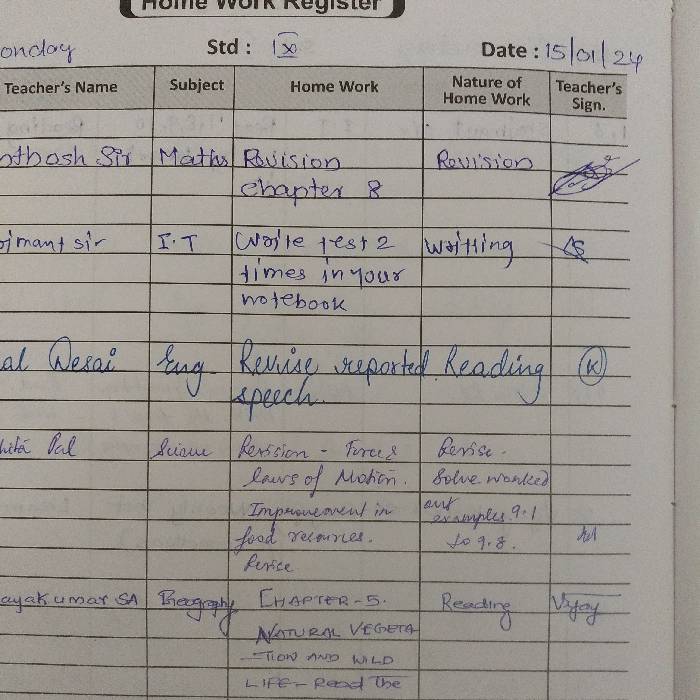 Home Work Register
onday Std : IX Date : 15/01/24
Teacher's Name Subject Home Work Nature of Home Work Teacher's Sign.
nthosh Sir Maths Revision Revision
chapter 8
jmant sir I.T Write test 2 writting
times in your
notebook
al Desai Eng Revise reported Reading K
speech.
hita Pal Science Revision - Force & Revise.
laws of Motion. Solve worked
Improvement in out examples 9.1
food resources. to 9.8.
Revise
ayakumar SA Geography CHAPTER-5. Reading Vijay
NATURAL VEGETA
-TION AND WILD
LIFE- Read The